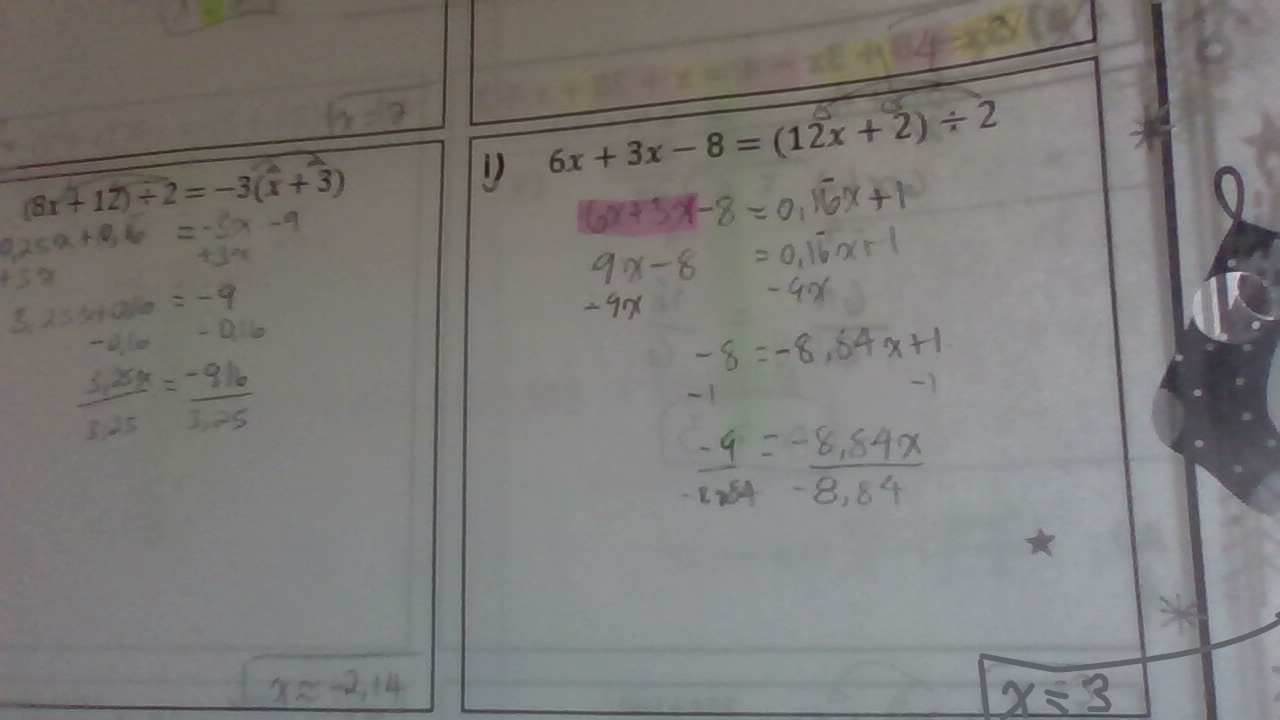 (8x + 12) ÷ 2 = -3(x + 3)
0,25x + 0,16 = -3x - 9
+3x +3x
3,25x + 0,16 = -9
-0,16 -0,16
3,25x = -9,16
3,25 3,25
x = -2,14
i) 6x + 3x - 8 = (12x + 2) ÷ 2
6x + 3x - 8 = 0,16x + 1
9x - 8 = 0,16x + 1
-9x -9x
-8 = -8,84x + 1
-1 -1
-9 = -8,84x
-8,84 -8,84
x = 3